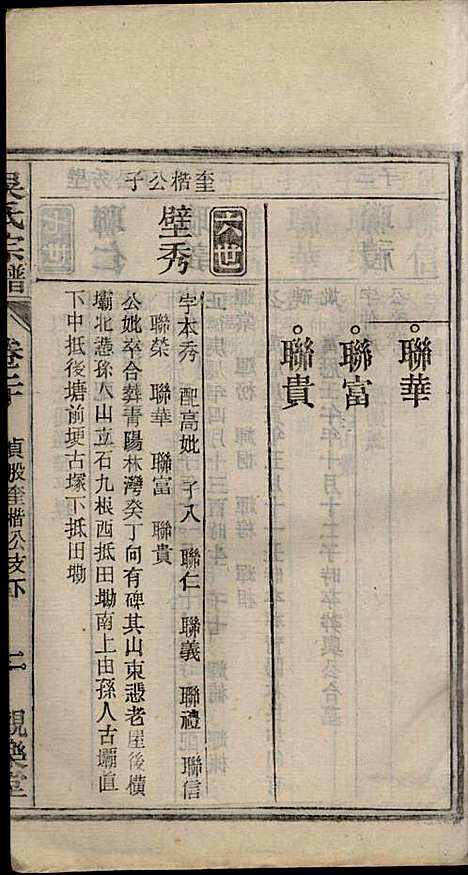 聯華
聯富
聯貴
奎楷公子
六世
壁秀
字本秀 配高妣 子八 聯仁 聯義 聯禮 聯信
聯榮 聯華 聯富 聯貴
公妣卒合葬青陽林灣癸丁向有碑其山東憑老屋後橫
壩北憑孫人山立石九根西抵田塝南上由孫人古壩直
下中抵後塘前埂古塚下抵田塝
吳氏宗譜
卷二十
貞股奎楷公支下
二